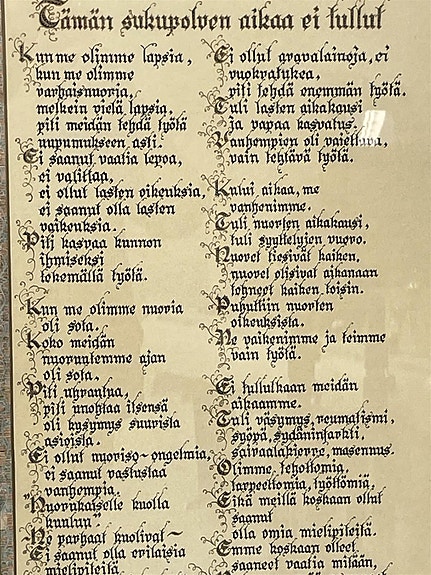 Tämän sukupolven aikaa ei tullut
Kun me olimme lapsia,
kun me olimme
varhaisnuoria,
melkein vielä lapsia,
piti meidän tehdä työtä
uupumukseen asti.
Ei saanut vaatia lepoa,
ei valittaa,
ei ollut lasten oikeuksia,
ei saanut olla lasten
vaikeuksia.
Piti kasvaa kunnon
ihmiseksi
tekemällä työtä.
Kun me olimme nuoria
oli sota.
Koko meidän
nuoruutemme ajan
oli sota.
Piti uhrautua,
piti unohtaa itsensä
oli kysymys suurista
asioista.
Ei ollut nuoriso-ongelmia,
ei saanut vastustaa
vanhempia.
"Nuorukaiselle kuolla
kuuluu"
Ne parhaat kuolivat-
Ei saanut olla erilaisia
mielipiteitä.
Ei ollut gravalainoja, ei
vuokratukea,
piti tehdä enemmän työtä.
Tuli lasten aikakausi
ja vapaa kasvatus.
Vanhempien oli vaiettava,
vain tehtävä työtä.
Kului aikaa, me
vanhenimme.
Tuli nuorten aikakausi,
tuli syyttelyjen vuoro.
Nuoret tiesivät kaiken,
nuoret olisivat aikanaan
tehneet kaiken toisin.
Puhuttiin nuorten
oikeuksista.
Me vaikenimme ja teimme
vain työtä.
Ei tullutkaan meidän
aikaamme.
Tuli väsymys, reumatismi,
syöpä, sydäninfarkti,
sairaalakierre, masennus.
Olimme tehottomia,
tarpeettomia, työttömiä,
Eikä meillä koskaan ollut
saanut
olla omia mielipiteitä.
Emme koskaan olleet
saaneet vaatia mitään,